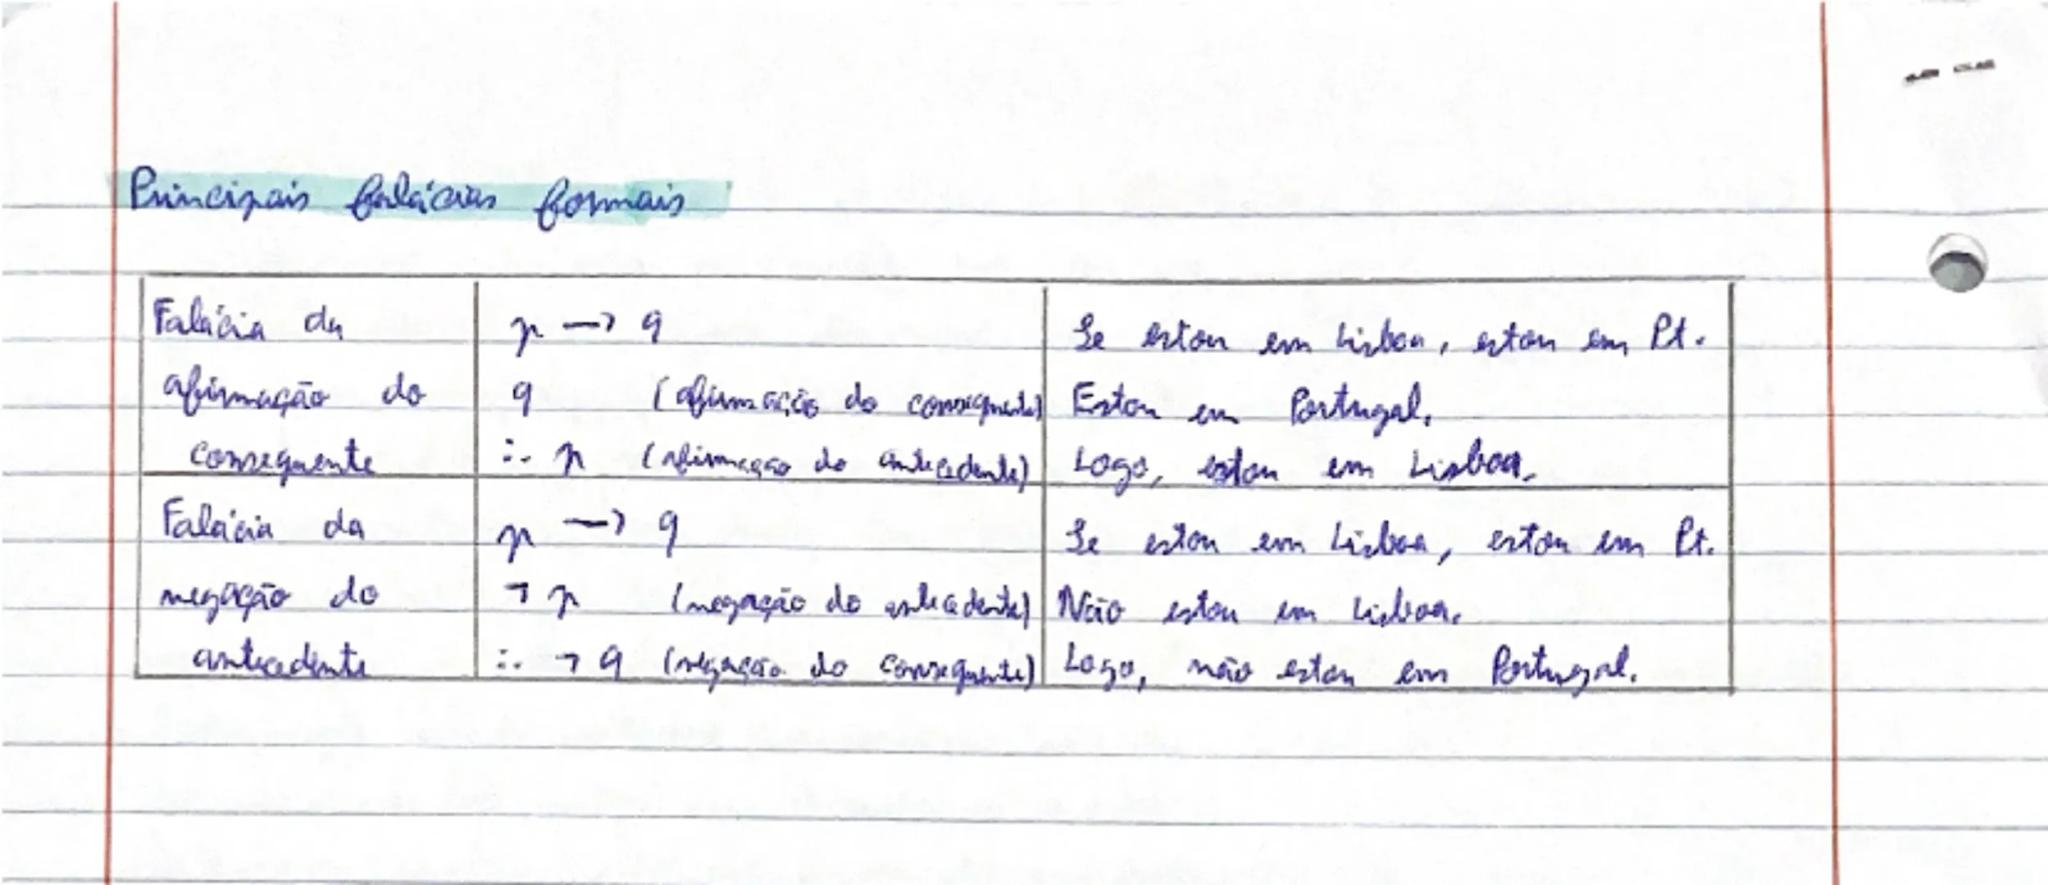 Principais falácias formais
Falácia da
afirmação do
consequente
p → q
q (afirmação do consequente)
∴ p (afirmação do antecedente)
Se estou em Lisboa, estou em Pt.
Estou em Portugal.
Logo, estou em Lisboa.
Falácia da
negação do
antecedente
p → q
¬ p (negação do antecedente)
∴ ¬ q (negação do consequente)
Se estou em Lisboa, estou em Pt.
Não estou em Lisboa.
Logo, não estou em Portugal.